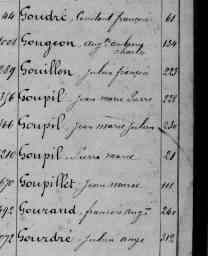 44 Goudré, Constant françois 61
1008 Gougeon, aug.te
charles 134
289 Gouillon, Julien françois 223
316 Goupil, jean marie Pierre 228
166 Goupil, jean marie Julien 230
210 Goupil, Pierre marie 21
670 Goupillet, Jean marie 111
492 Gourand, francois aug.te 240
072 Gourdré, Julien ange 312